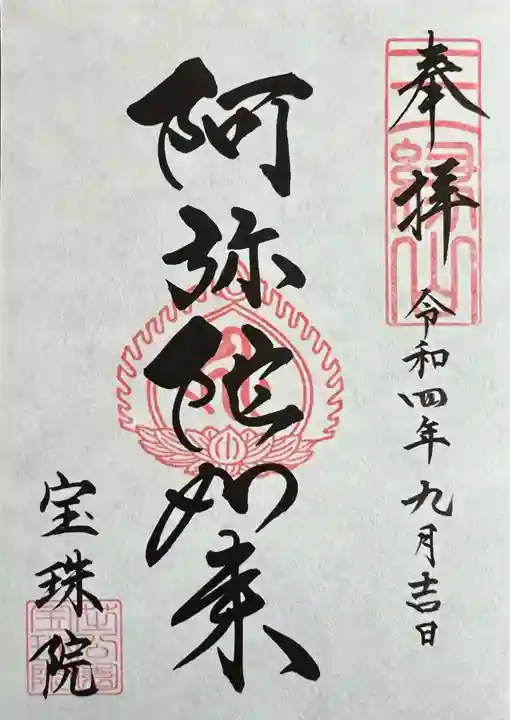 奉拝
令和四年九月吉日
三縁山
阿弥陀如来
宝珠院